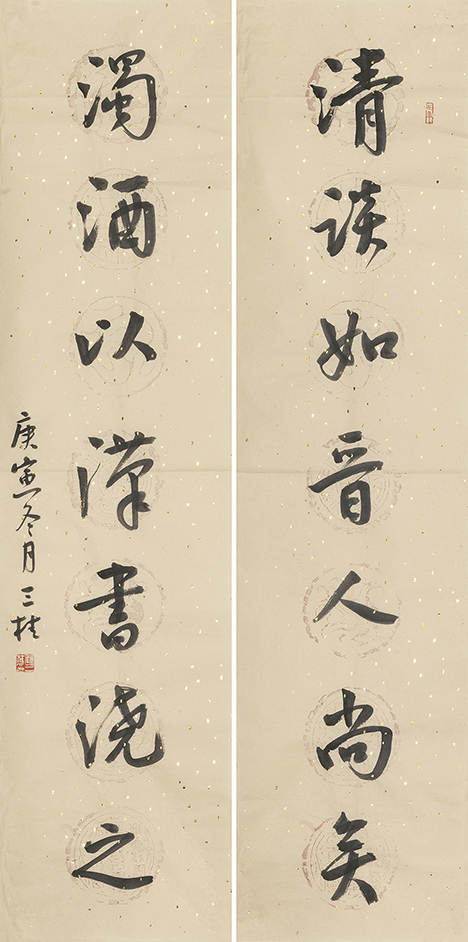 清談如晋人尚矣
濁酒以漢書浇之
庚寅冬月三桂